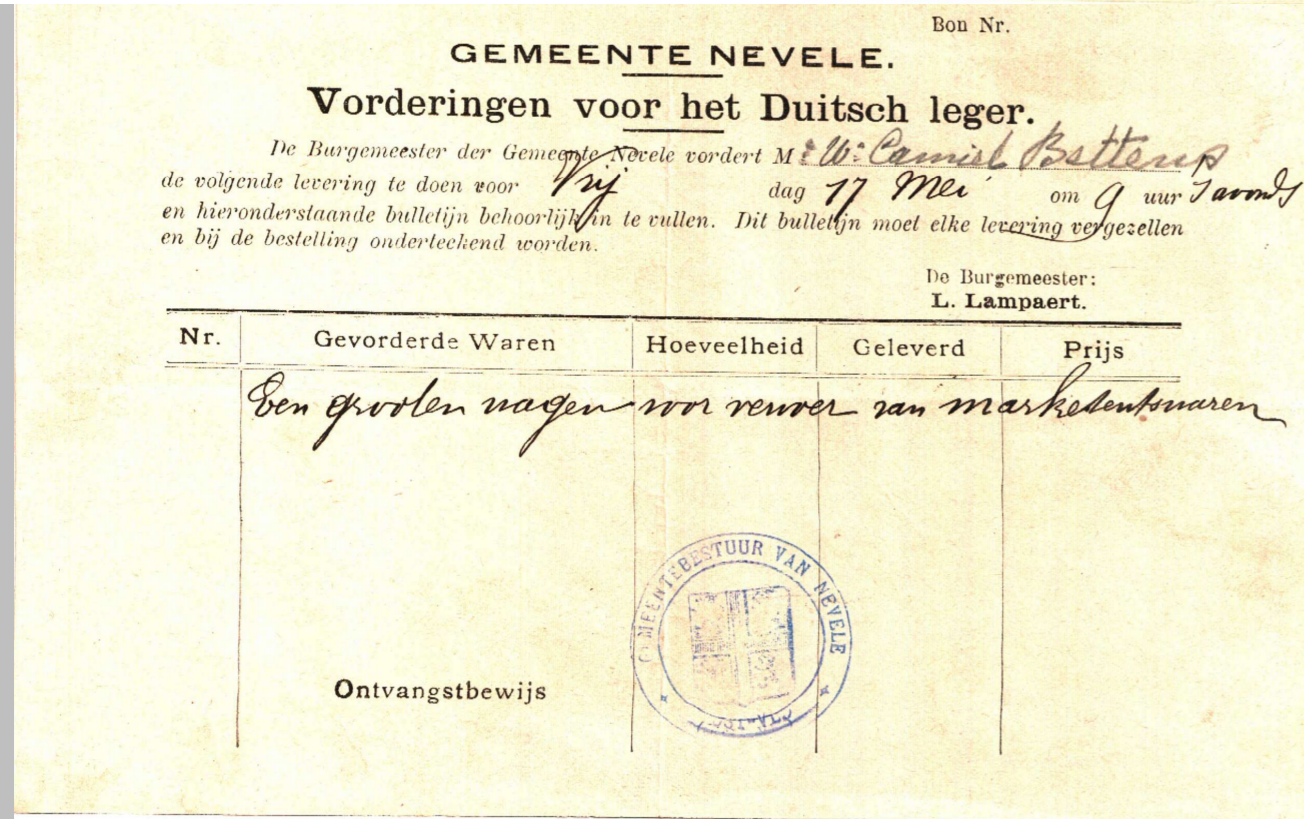 Bon Nr.
GEMEENTE NEVELE.
Vorderingen voor het Duitsch leger.
De Burgemeester der Gemeente Nevele vordert Mr We Camiel Bettens
de volgende levering te doen voor Vrij dag 17 Mei om 9 uur 's avonds
en hieronderstaande bulletijn behoorlijk in te vullen. Dit bulletijn moet elke levering vergezellen
en bij de bestelling onderteekend worden.
De Burgemeester:
L. Lampaert.
Nr. Gevorderde Waren Hoeveelheid Geleverd Prijs
Een grooten wagen voor vervoer van marketentswaren
GEMEENTEBESTUUR VAN NEVELE
Ontvangstbewijs